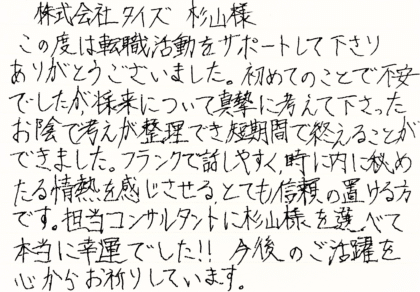 株式会社タイズ 杉山様
この度は転職活動をサポートして下さり
ありがとうございました。初めてのことで不安
でしたが、将来について真摯に考えて下さった
お陰で考えが整理でき短期間で終えることが
できました。フランクで話しやすく、時に内に秘め
たる情熱を感じさせる、とても信頼の置ける方
です。担当コンサルタントに杉山様を選べて
本当に幸運でした!! 今後のご活躍を
心からお祈りしています。